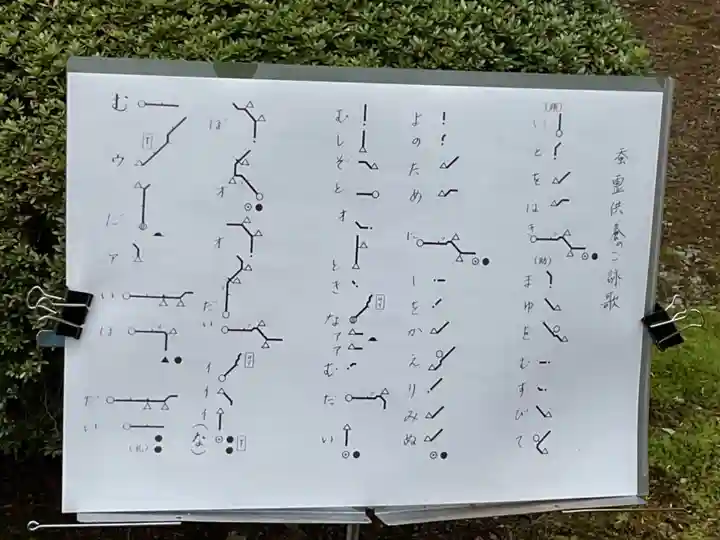 蚕霊供養のご詠歌
いとをはき
まゆをむすびて
よのために
しをかえりみぬ
むしぞとオ
ときなアアむ
たい
ばオオ
だいイイイ(な)
むウだァ
いはだい
(礼)